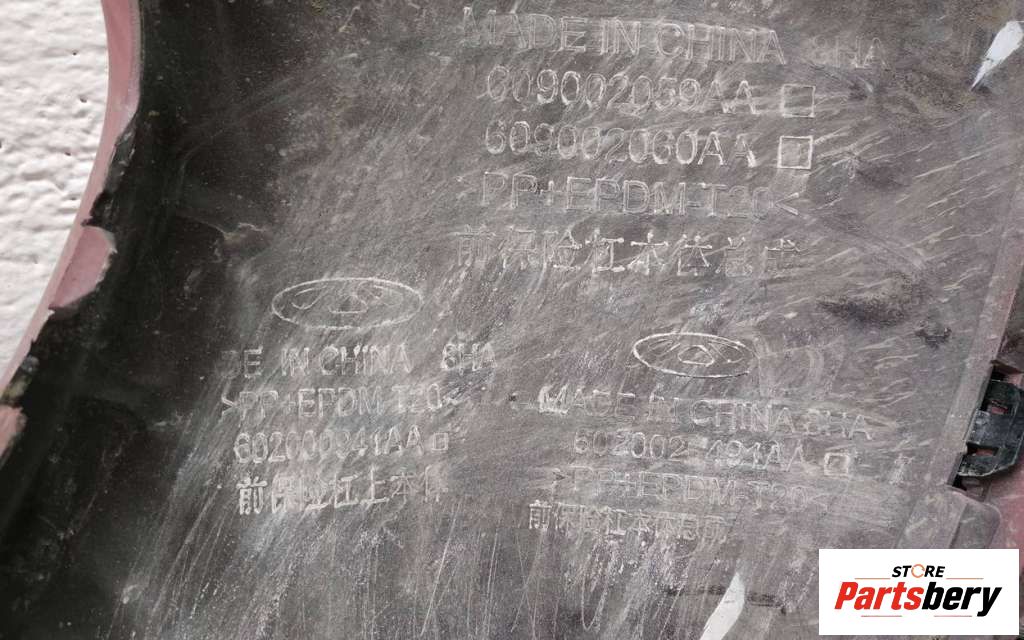 MADE IN CHINA 8HA
609002059AA
609002060AA
PP+EPDM-T20<
前保险杠本体总成
IN CHINA 8HA
>PP+EPDM-T20<
602000941AA
前保险杠上本体
MADE IN CHINA 8HA
602002494AA
>PP+EPDM-T20<
前保险杠本体总成
STORE
Partsbery